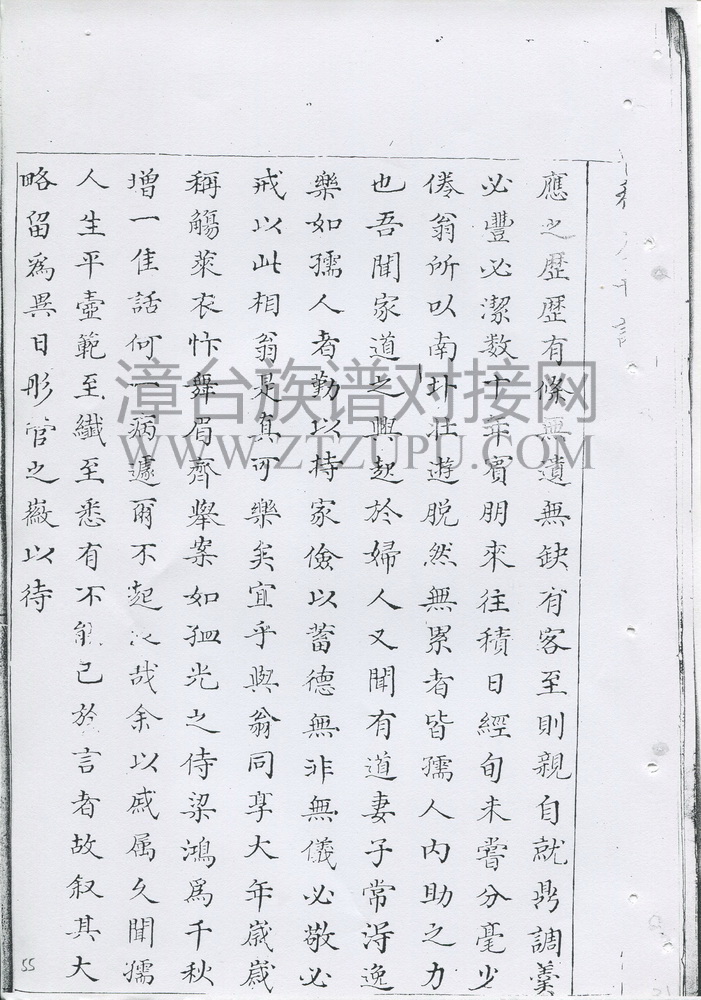 應之歷歷有條無遺無缺有客至則親自就鼎調羹
必豐必潔數十年賓朋來往積日經旬未嘗分毫少
倦翁所以南圤壯遊脱然無累者皆孺人內助之力
也吾聞家道之興起於婦人又聞有道妻子常得逸
樂如孺人者勤以持家儉以蓄德無非無儀必敬必
戒以此相翁是真可樂矣宜乎與翁同享大年嵗嵗
稱觴萊衣忭舞眉齊舉案如孟光之侍梁鴻爲千秋
增一佳話何一病遽爾不起哉余以戚属久聞孺
人生平壼範至纖至悉有不能已於言者故叙其大
略留爲異日彤管之徵以待
漳台族谱对接网
WWW.ZTZUPU.COM
55